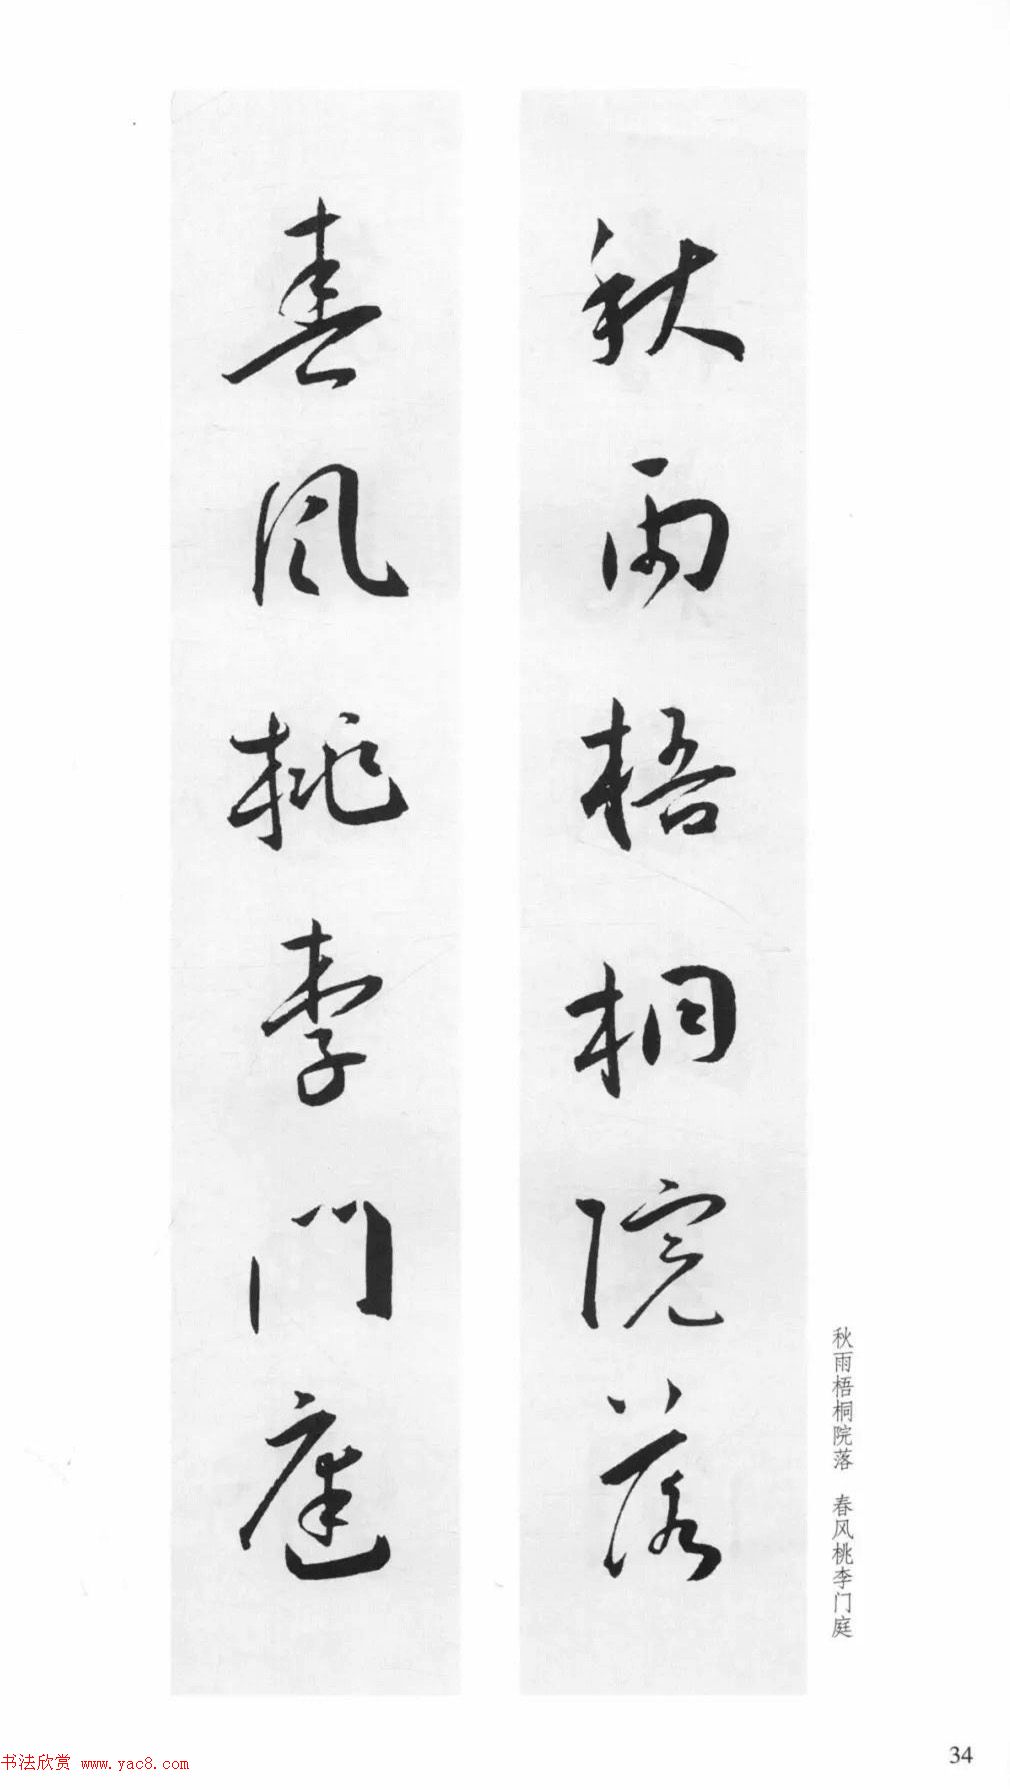 秋雨梧桐院落
春风桃李門庭
秋雨梧桐院落 春风桃李门庭
书法欣赏 www.yac8.com
34